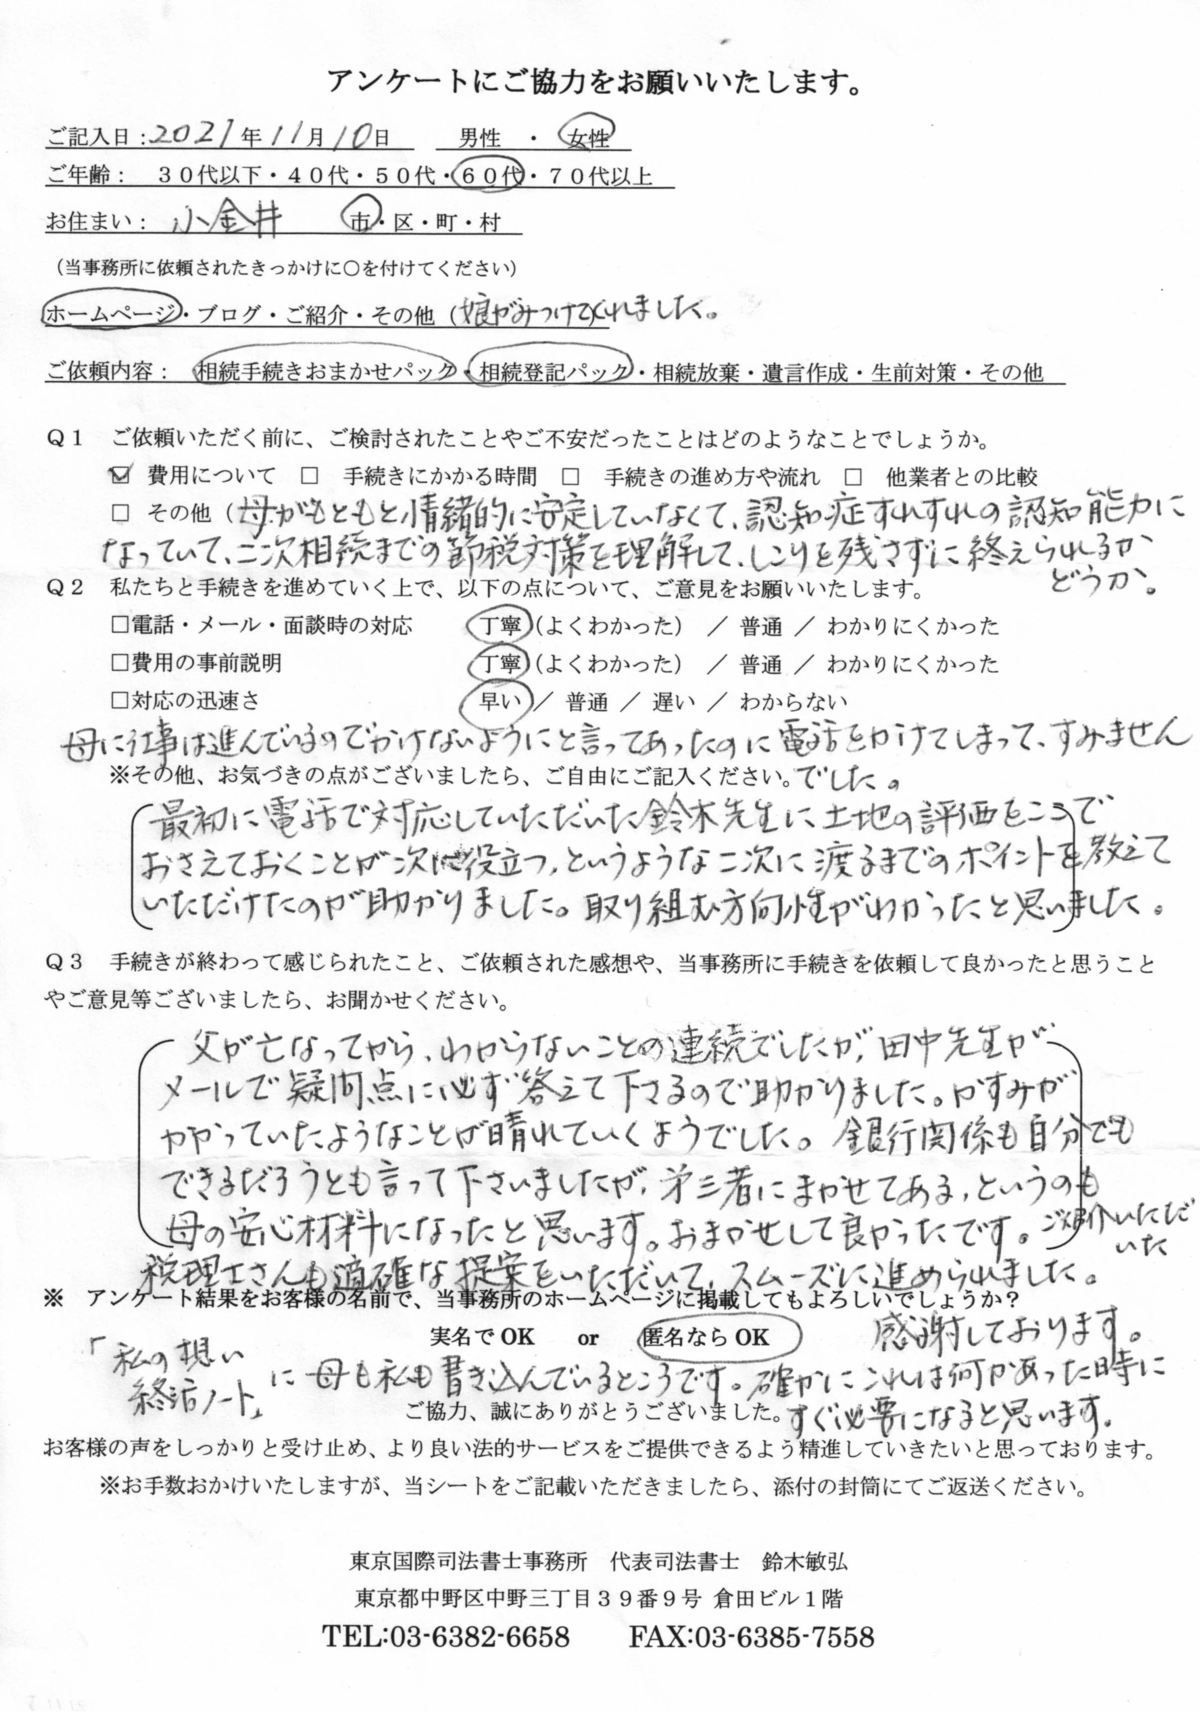 アンケートにご協力をお願いいたします。
ご記入日：2021年11月10日　男性　・　女性
ご年齢：　３０代以下・４０代・５０代・６０代・７０代以上
お住まい：　小金井　市・区・町・村
（当事務所に依頼されたきっかけに○を付けてください）
ホームページ・ブログ・ご紹介・その他（娘がみつけてくれました。
ご依頼内容：　相続手続きおまかせパック・相続登記パック・相続放棄・遺言作成・生前対策・その他
Ｑ１　ご依頼いただく前に、ご検討されたことやご不安だったことはどのようなことでしょうか。
☑　費用について　□　手続きにかかる時間　□　手続きの進め方や流れ　□　他業者との比較
□　その他（母がもともと情緒的に安定していなくて、認知症すれすれの認知能力に
なっていて、二次相続までの節税対策を理解して、しこりを残さずに終えられるか
どうか。
Ｑ２　私たちと手続きを進めていく上で、以下の点について、ご意見をお願いいたします。
□電話・メール・面談時の対応　丁寧（よくわかった）　／　普通　／　わかりにくかった
□費用の事前説明　丁寧（よくわかった）　／　普通　／　わかりにくかった
□対応の迅速さ　早い／　普通　／　遅い　／　わからない
母に仕事は進んでいるのでかけないようにと言ってあったのに電話をかけてしまって、すみません
でした。
※その他、お気づきの点がございましたら、ご自由にご記入ください。
最初に電話で対応していただいた鈴木先生に土地の評価をここで
おさえておくことが次に役立つ、というような二次に渡るまでのポイントを教えて
いただけたのが助かりました。取り組む方向性がわかったと思いました。
Ｑ３　手続きが終わって感じられたこと、ご依頼された感想や、当事務所に手続きを依頼して良かったと思うこと
やご意見等ございましたら、お聞かせください。
父が亡なってから、わからないことの連続でしたが、田中先生が
メールで疑問点に必ず答えて下さるので助かりました。かすみが
かかっていたようなことが晴れていくようでした。銀行関係も自分でも
できるだろうとも言って下さいましたが、第三者にまかせてある、というのも
母の安心材料になったと思います。おまかせして良かったです。ご紹介いただ
いた
税理士さんも適確な提案をいただいて、スムーズに進められました。
※　アンケート結果をお客様の名前で、当事務所のホームページに掲載してもよろしいでしょうか？
実名で OK　or　匿名なら OK　感謝しております。
「私の想い
終活ノート」に母も私も書き込んでいるところです。確かにこれは何かあった時に
すぐ必要になると思います。
ご協力、誠にありがとうございました。
お客様の声をしっかりと受け止め、より良い法的サービスをご提供できるよう精進していきたいと思っております。
※お手数おかけいたしますが、当シートをご記載いただきましたら、添付の封筒にてご返送ください。
東京国際司法書士事務所　代表司法書士　鈴木敏弘
東京都中野区中野三丁目３９番９号 倉田ビル１階
TEL:03-6382-6658　FAX:03-6385-7558